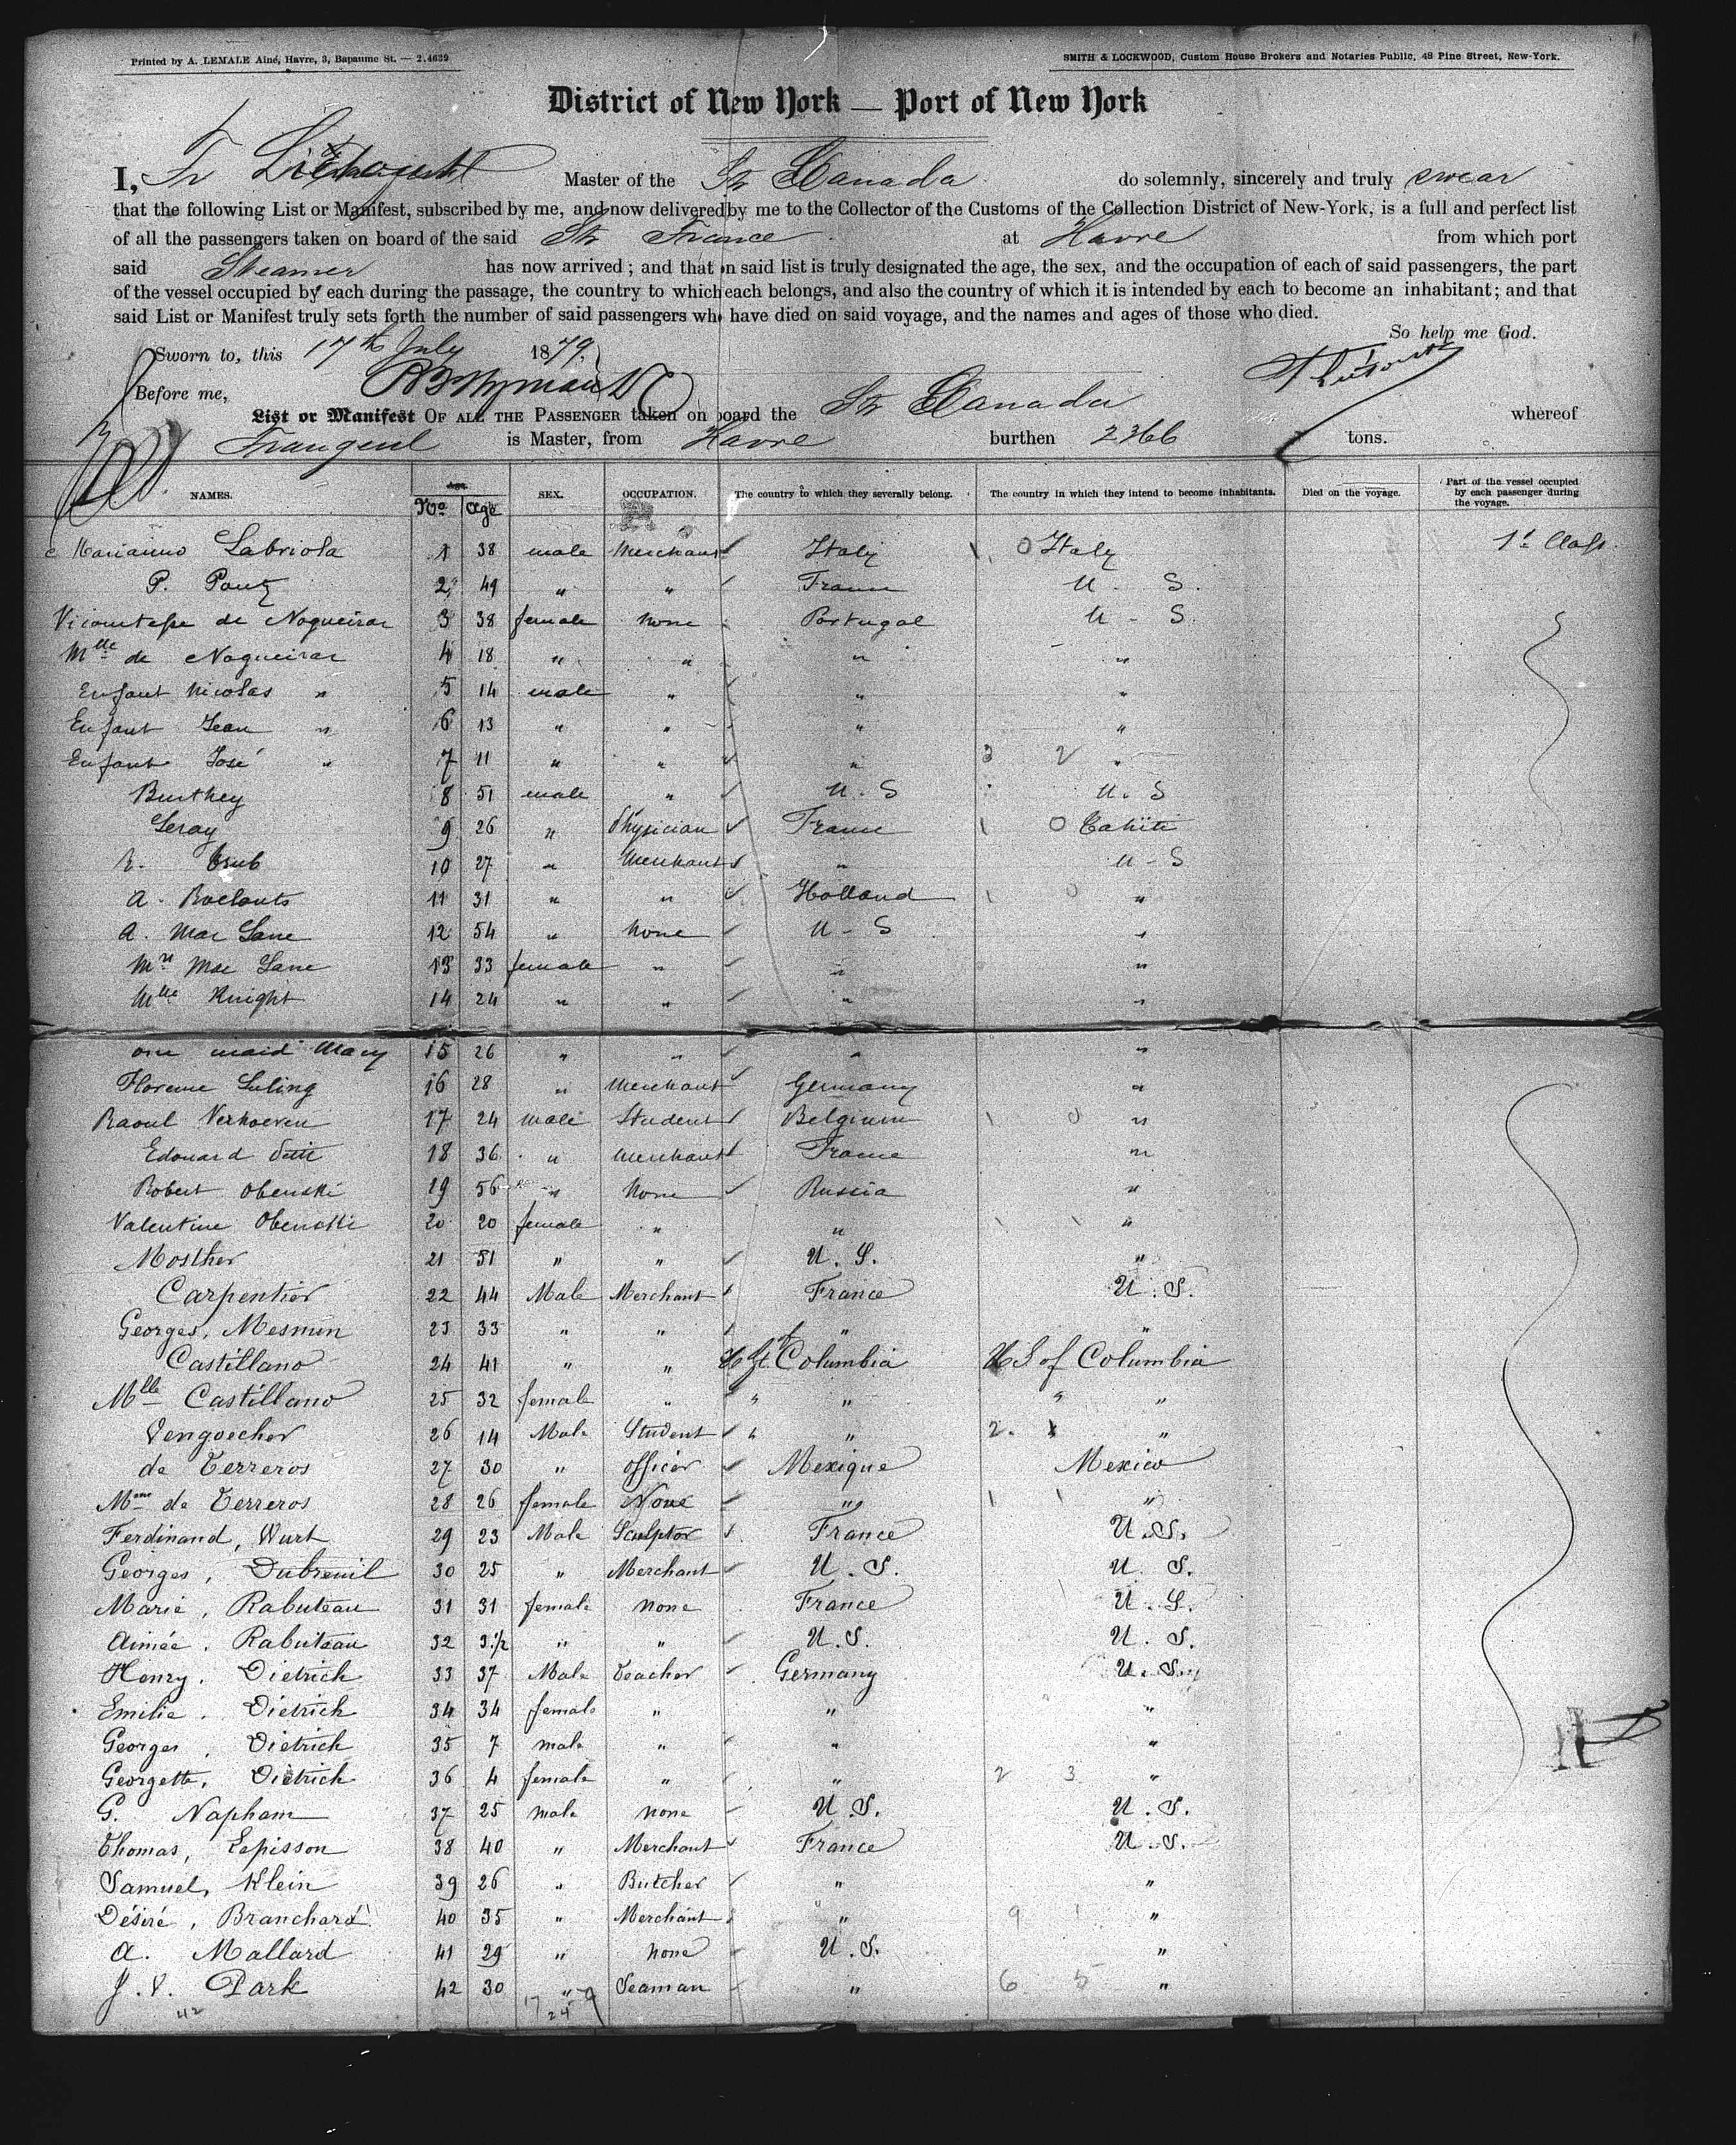 Printed by A. LEMALE Aîné, Havre, 3, Bapaume St. — 2.4629
SMITH & LOCKWOOD, Custom House Brokers and Notaries Public, 48 Pine Street, New-York.
District of New York — Port of New York
I, Master of the Str Canada do solemnly, sincerely and truly swear
that the following List or Manifest, subscribed by me, and now delivered by me to the Collector of the Customs of the Collection District of New-York, is a full and perfect list
of all the passengers taken on board of the said Str France at Havre from which port
said Steamer has now arrived; and that on said list is truly designated the age, the sex, and the occupation of each of said passengers, the part
of the vessel occupied by each during the passage, the country to which each belongs, and also the country of which it is intended by each to become an inhabitant; and that
said List or Manifest truly sets forth the number of said passengers who have died on said voyage, and the names and ages of those who died.
So help me God.
Sworn to, this 17th July 1879.
Before me,
List or Manifest OF ALL THE PASSENGER taken on board the Str Canada whereof
Frangeul is Master, from Havre burthen 2366 tons.
NAMES. Age No Age SEX. OCCUPATION. The country to which they severally belong. The country in which they intend to become inhabitants. Died on the voyage. Part of the vessel occupied by each passenger during the voyage.
Marianno Labriola 1 38 male Merchant Italy 1 0 Italy 1e Class
P. 2 49 " " France U. S.
Vicomtesse de Nogueiras 3 38 female none Portugal U - S.
Mlle de Nogueiras 4 18 " " " "
Enfant Nicolas " 5 14 male " " "
Enfant Jean " 6 13 " " " "
Enfant José " 7 11 " " " 3 2 "
Burthey 8 51 male " U. S U. S
Leray 9 26 " Physician France 1 0 Tahiti
10 27 " Merchant " U - S
A. Roelants 11 31 " " Holland 1 0 "
A. Mac Lane 12 54 " none U - S "
Mrs Mac Lane 13 33 female " " "
Mlle Knight 14 24 " " " "
one maid Mary 15 26 " " " "
Florence Luling 16 28 " Merchant Germany "
Raoul Verhoeven 17 24 male Student Belgium 1 0 "
Edouard 18 36 " Merchant France "
Robert Obenski 19 56 " None Russia "
Valentine Obenski 20 20 female " " "
Mosther 21 51 " " U. S. "
Carpentier 22 44 Male Merchant France U. S.
Georges, Mesmin 23 33 " " " "
Castillano 24 41 " " Columbia U S of Columbia
Mlle Castillano 25 32 female " " " " "
Vengoechor 26 14 Male Student " " 2. 1 "
de Terreros 27 30 " officer Mexique Mexico
Mme de Terreros 28 26 female None " 1 1 "
Ferdinand, Wurt 29 23 Male Sculptor France U. S.
Georges, Dubreuil 30 25 " Merchant U. S. U. S.
Marie, Rabuteau 31 31 female none France U. S.
Aimée, Rabuteau 32 3 1/2 " " U. S. U. S.
Henry, Dietrich 33 37 Male Teacher Germany U. S.
Emilie, Dietrich 34 34 female " " "
Georges, Dietrich 35 7 male " " "
Georgette, Dietrich 36 4 female " " 2 3 "
G. Napham 37 25 male none U. S. U. S.
Thomas, Lepisson 38 40 " Merchant France U. S.
Samuel, Klein 39 26 " Butcher " "
Désiré, Branchard 40 35 " Merchant " 9 1 "
A. Mallard 41 29 " none U. S. "
J. V. Park 42 30 " Seaman " 6 5 "
42 17 24